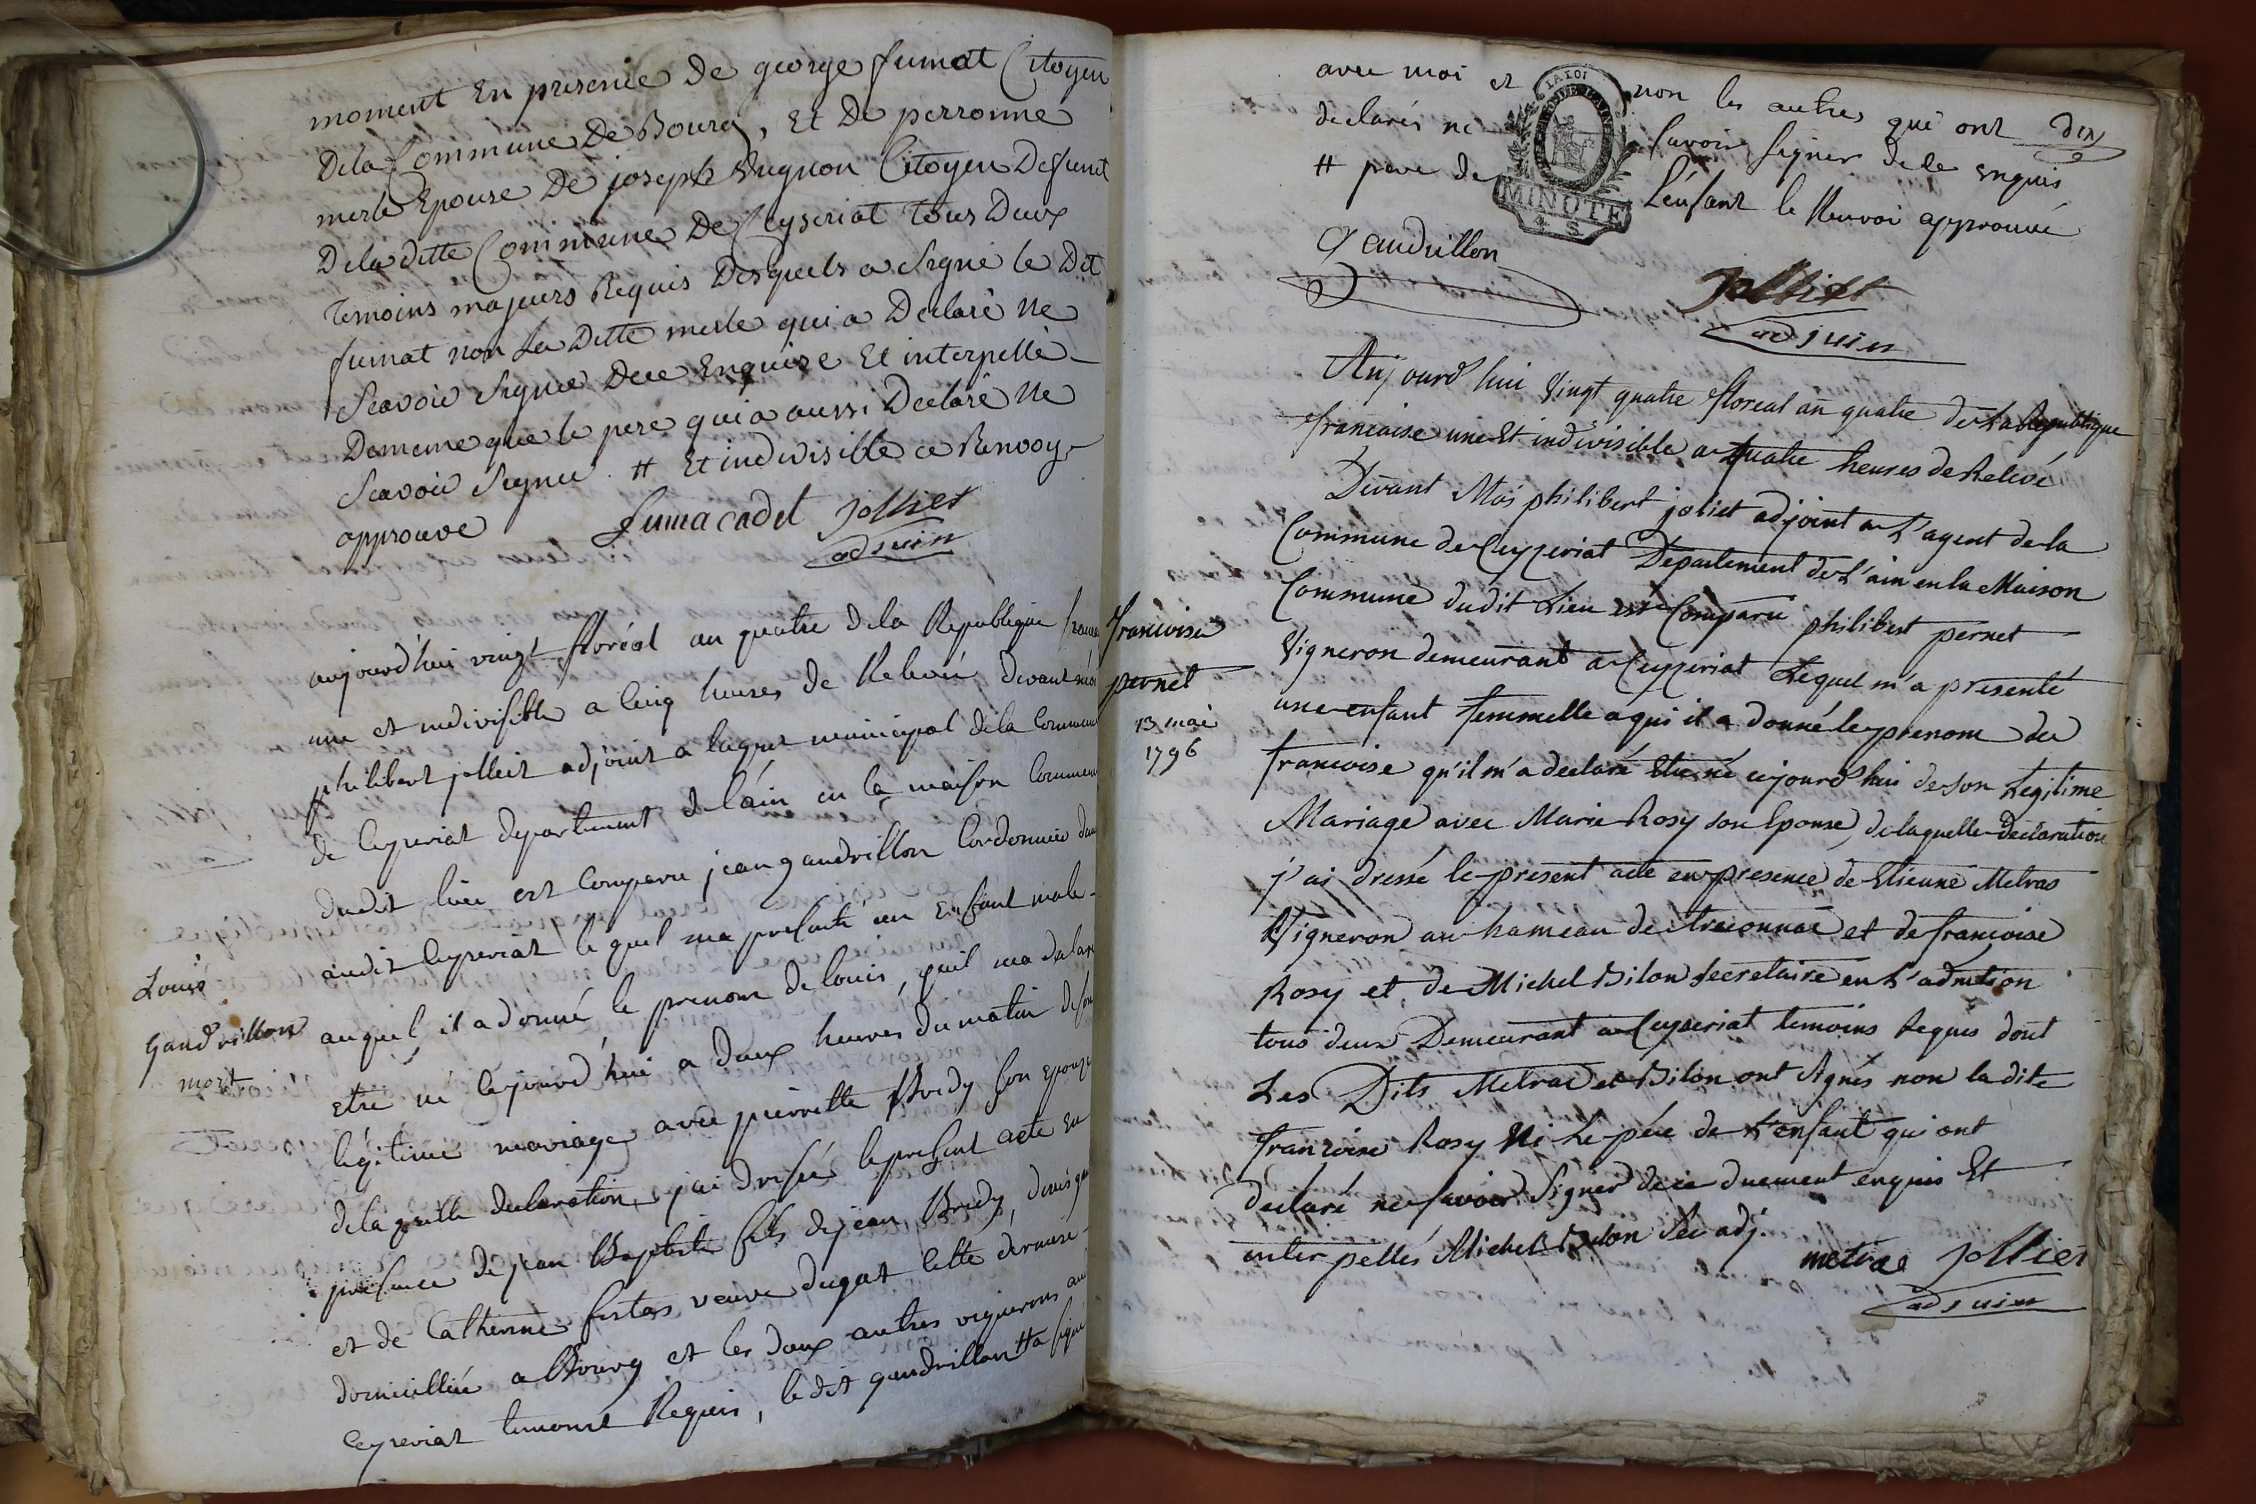 moment En presence De george fumat Citoyen
De la Commune De Bourg, Et De perronne
merle Epouse De joseph Vugnon Citoyen Defunt
De la ditte Commune De Ceyseriat Tous Deux
Temoins majeurs Requis Desquels a Signé le Dit
fumat non La Ditte merle qui a Declaré Ne
Scavoir Signer Dece Enquise Et interpellé
De meme que le pere qui a aussi Declaré Ne
Scavoir Signer. # Et indivisible ce Renvoy
approuve
fumat cadet Jolliet
adjuin
aujourd'hui vingt floréal an quatre de la Republique
une et indivisible a Cinq heures de Relevé devant moi
philibert jolliet adjoint a lagent municipal de la Commune
de Ceyzeriat departement de l'ain en la maison Commune
dudit lieu est Comparu jean gaudrillon Cordonnier
audit Ceyzeriat le quel ma presenté un Enfant male
Louis
Gaudrillon
mort
auquel il a donné le prenom de louis, quil ma declaré
etre né cejourd'hui a deux heures du matin de son
légitime mariage avec pierrette Bredy son epouse
de laquelle declaration j'ai dressé le present acte en
presence de jean Baptiste fils de jean Bredy,
et de Catherine veuve dugat Cette derniere
domiciliée a Bourg et les deux autres vignerons au
Ceyzeriat temoins Requis, le dit gaudrillon # a signé
avec moi et non les autres qui ont
dix
declarés ne Savoir Signer de ce enquis
# pere de L'enfant le Renvoi approuvé
LA LOI
MINUTE
4. S.
Gaudrillon
Jolliet
adjuin
francoise
pernet
13 mai
1796
Aujourd'hui Vingt quatre floreal an quatre de La Republique
francaise une Et indivisible a quatre heures de Relevé
Devant Moi philibert joliet adjoint a L'agent de la
Commune de Ceyzeriat Departement de L'ain en la Maison
Commune dudit Lieu est Comparu philibert pernet
Vigneron demeurant a Ceyzeriat Lequel m'a presenté
une enfant femmelle a qui il a donné le prenom de
francoise qu'il m'a declaré Etre né cejourd'hui de son Legitime
Mariage avec Marie Rosy son Epouse, de laquelle declaration
j'ai dressé le present acte en presence de Etienne Metras
Vigneron au hameau de treconnas et de francoise
Rosy et de Michel Bilon secretaire en L'admtion
tous deux Demeurant a Ceyzeriat temoins Requis dont
Les Dits Metras et Bilon ont Signés non la dite
françoise Rosy Ni Le pére de L'enfant qui ont
declaré ne savoir Signer de ce duement enquis Et
interpellés Michel Bilon Sec adj.
metras Jollier
adjuin